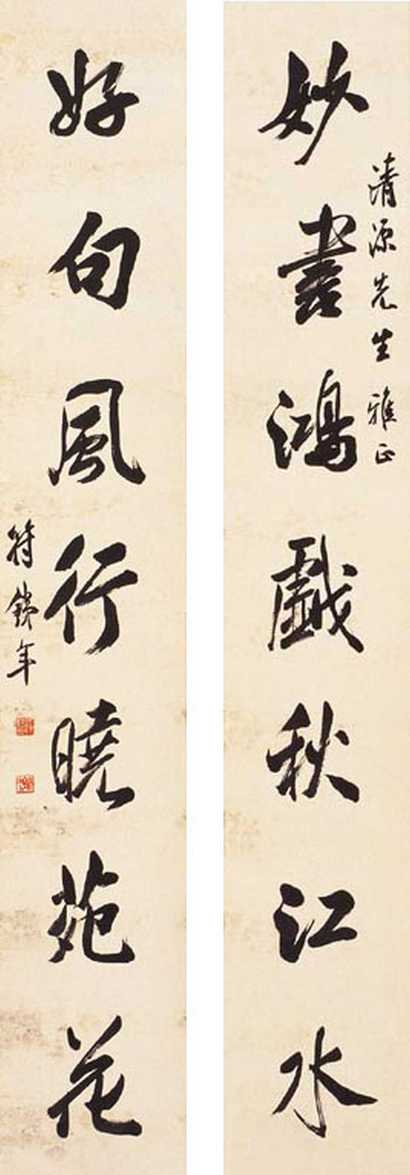 清源先生雅正
妙書鴻戲秋江水
好句風行曉苑花
符鐵年